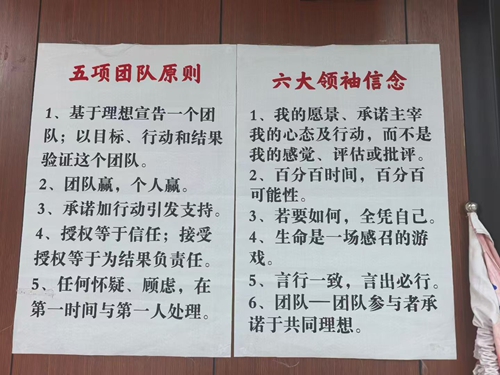 五项团队原则
1、基于理想宣告一个团
队；以目标、行动和结果
验证这个团队。
2、团队赢，个人赢。
3、承诺加行动引发支持。
4、授权等于信任；接受
授权等于为结果负责任。
5、任何怀疑、顾虑，在
第一时间与第一人处理。
六大领袖信念
1、我的愿景、承诺主宰
我的心态及行动，而不是
我的感觉、评估或批评。
2、百分百时间，百分百
可能性。
3、若要如何，全凭自己。
4、生命是一场感召的游
戏。
5、言行一致，言出必行。
6、团队—团队参与者承
诺于共同理想。